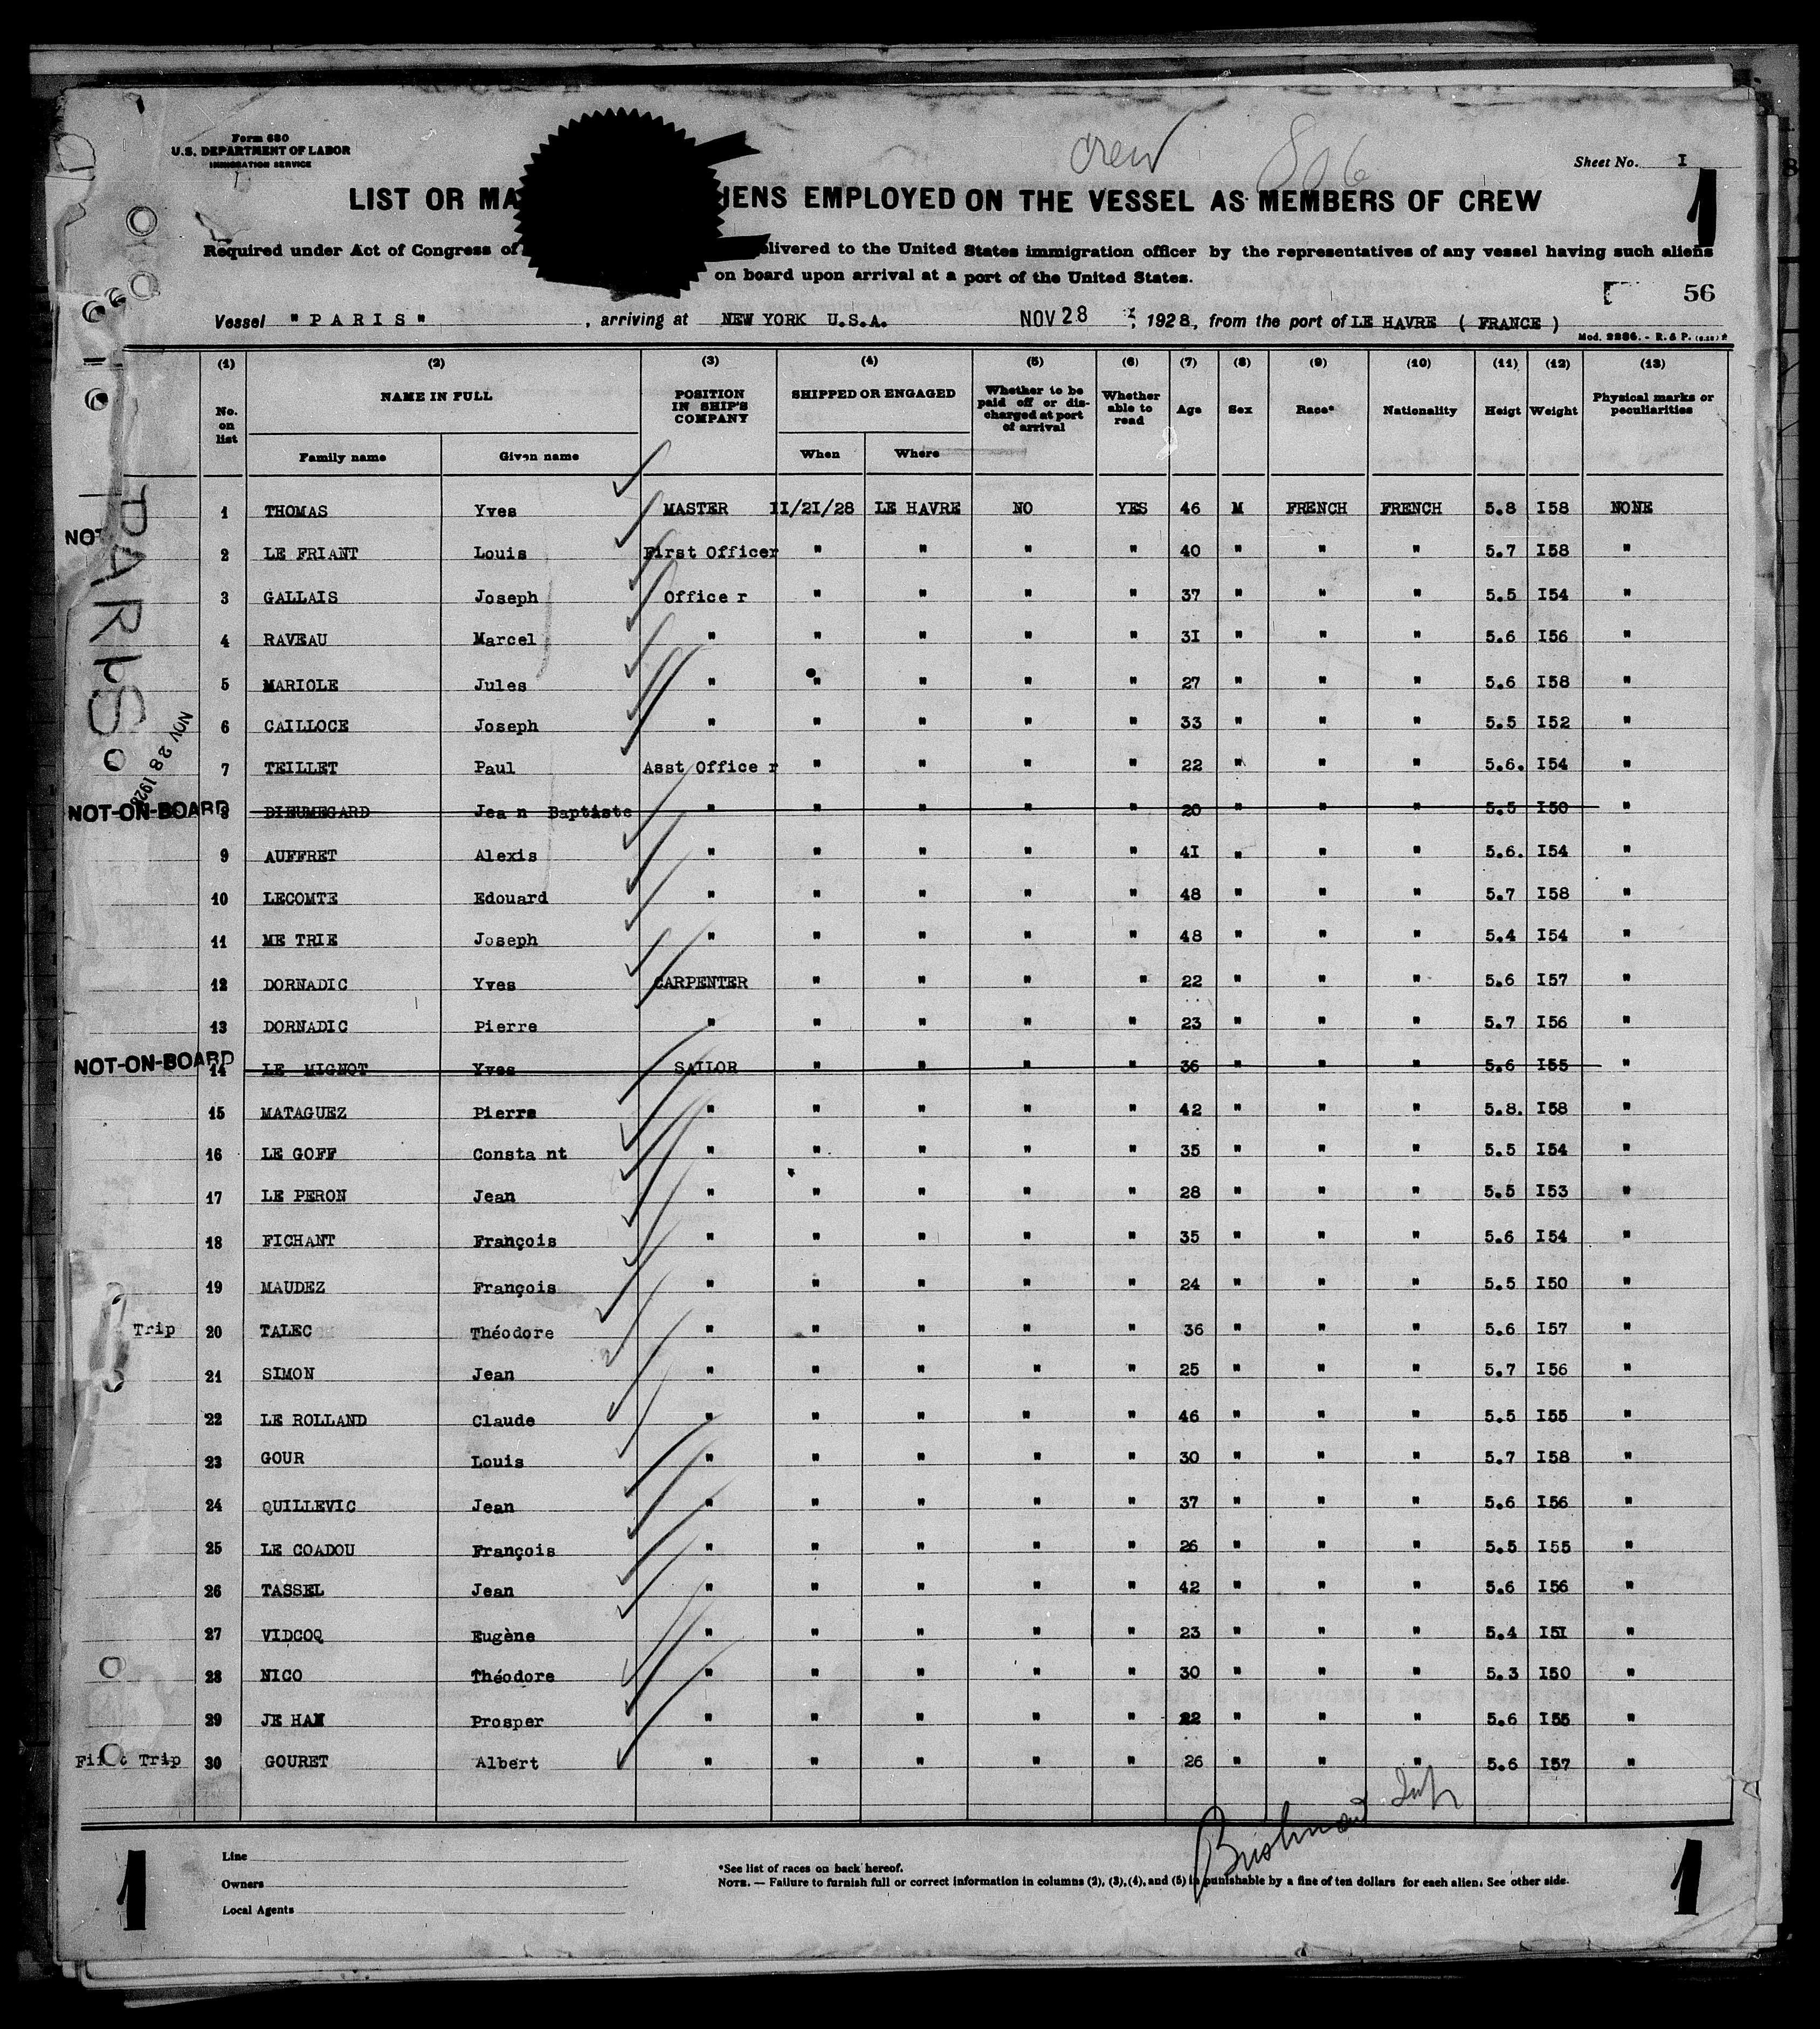 Form 680
U.S. DEPARTMENT OF LABOR
IMMIGRATION SERVICE
crew 806
Sheet No. I
1
LIST OR MA IENS EMPLOYED ON THE VESSEL AS MEMBERS OF CREW
Required under Act of Congress of elivered to the United States immigration officer by the representatives of any vessel having such aliens
on board upon arrival at a port of the United States.
56
Vessel "PARIS", arriving at NEW YORK U.S.A. NOV 28, 1928, from the port of LE HAVRE ( FRANCE )
Mod. 2286. - R. & P.
(1) (2) (3) (4) (5) (6) (7) (8) (9) (10) (11) (12) (13)
No. on list NAME IN FULL POSITION IN SHIP'S COMPANY SHIPPED OR ENGAGED Whether to be paid off or discharged at port of arrival Whether able to read Age Sex Race* Nationality Heigt Weight Physical marks or peculiarities
Family name Given name When Where
1 THOMAS Yves MASTER 11/21/28 LE HAVRE NO YES 46 M FRENCH FRENCH 5.8 I58 NONE
NOT
2 LE FRIANT Louis First Officer " " " " 40 " " " 5.7 I58 "
3 GALLAIS Joseph Office r " " " " 37 " " " 5.5 I54 "
4 RAVEAU Marcel " " " " " 3I " " " 5.6 I56 "
5 MARIOLE Jules " " " " " 27 " " " 5.6 I58 "
6 CAILLOCE Joseph " " " " " 33 " " " 5.5 I52 "
7 TEILLET Paul Asst Office r " " " " 22 " " " 5.6. I54 "
NOT-ON-BOARD 8 DIEUMEGARD Jea n Baptiste " " " " " 20 " " " 5.5 I50 "
9 AUFFRET Alexis " " " " " 4I " " " 5.6. I54 "
10 LECOMTE Edouard " " " " " 48 " " " 5.7 I58 "
11 ME TRIE Joseph " " " " " 48 " " " 5.4 I54 "
12 DORNADIC Yves CARPENTER " " " " 22 " " " 5.6 I57 "
13 DORNADIC Pierre " " " " " 23 " " " 5.7 I56 "
NOT-ON-BOARD 14 LE MIGNOT Yves SAILOR " " " " 36 " " " 5.6 I55 "
15 MATAGUEZ Pierre " " " " " 42 " " " 5.8. I58 "
16 LE GOFF Consta nt " " " " " 35 " " " 5.5 I54 "
17 LE PERON Jean " " " " " 28 " " " 5.5 I53 "
18 FICHANT François " " " " " 35 " " " 5.6 I54 "
19 MAUDEZ François " " " " " 24 " " " 5.5 I50 "
Trip 20 TALEC Théodore " " " " " 36 " " " 5.6 I57 "
21 SIMON Jean " " " " " 25 " " " 5.7 I56 "
22 LE ROLLAND Claude " " " " " 46 " " " 5.5 I55 "
23 GOUR Louis " " " " " 30 " " " 5.7 I58 "
24 QUILLEVIC Jean " " " " " 37 " " " 5.6 I56 "
25 LE COADOU François " " " " " 26 " " " 5.5 I55 "
26 TASSEL Jean " " " " " 42 " " " 5.6 I56 "
27 VIDCOQ Eugène " " " " " 23 " " " 5.4 I5I "
28 NICO Théodore " " " " " 30 " " " 5.3 I50 "
29 JE HAN Prosper " " " " " 22 " " " 5.6 I55 "
Trip 30 GOURET Albert " " " " " 26 " " " 5.6 I57 "
PARIS.
NOV 28 1928
Line
Owners
Local Agents
*See list of races on back hereof.
NOTE. — Failure to furnish full or correct information in columns (2), (3), (4), and (5) is punishable by a fine of ten dollars for each alien. See other side.
1
1